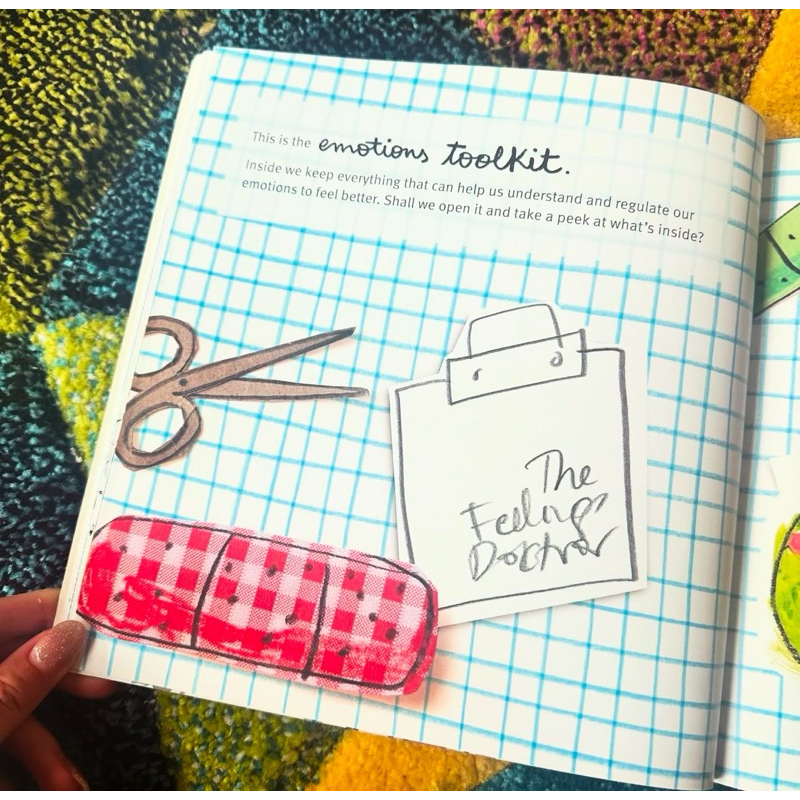 This is the emotions toolkit.
Inside we keep everything that can help us understand and regulate our
emotions to feel better. Shall we open it and take a peek at what's inside?
The
Feelings
Doctor